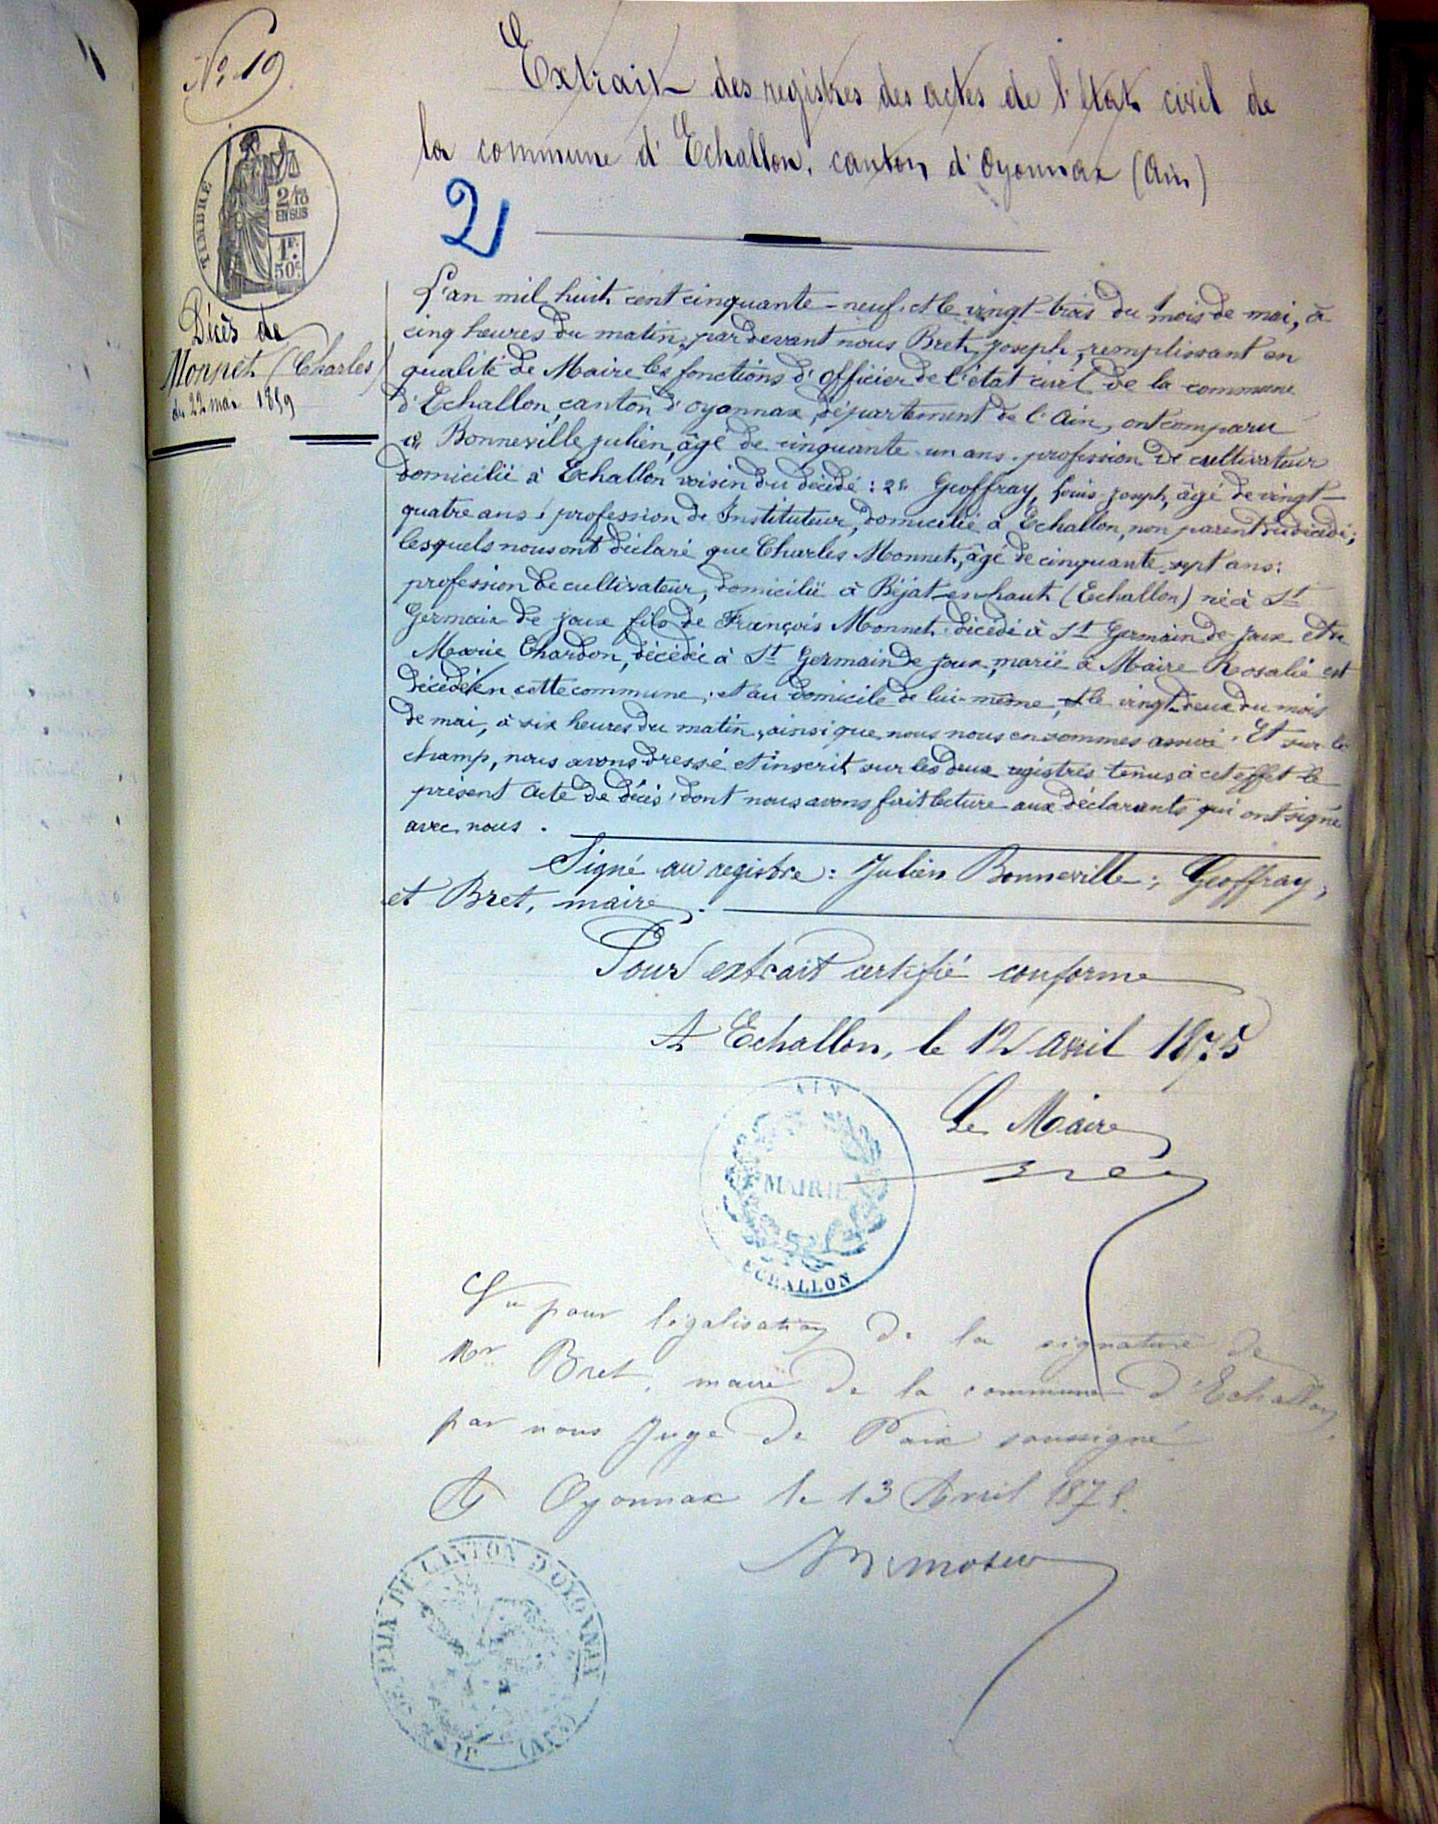 N° 19
Extrait des registres des actes de l'état civil de
la commune d'Echallon, canton d'Oyonnax (Ain)
TIMBRE
2/10
EN SUS
1F.
50c
2
Décès de
Monnet (Charles)
du 22 mai 1859
L'an mil huit cent cinquante-neuf et le vingt-trois du mois de mai, à
cinq heures du matin, pardevant nous Bret, Joseph, remplissant en
qualité de Maire les fonctions d'officier de l'état civil de la commune
d'Echallon, canton d'oyonnax, département de l'Ain, ont comparu
Bonneville julien, âgé de cinquante-un ans, profession de cultivateur
domicilié à Echallon voisin du décédé : 2e Geoffray, Louis-joseph, âgé de vingt-
quatre ans, profession de Instituteur, domicilié à Echallon, non parent du décédé;
lesquels nous ont déclaré que Charles Monnet, âgé de cinquante-sept ans;
profession de cultivateur, domicilié à Béjat-en-haut (Echallon) né à St
Germain de joux fils de François Monnet décédé à St Germain de joux et de
Marie Chardon, décédée à St Germain de joux, marié à Maire Rosalie est
décédé en cette commune, et au domicile de lui-même, et le vingt-deux du mois
de mai, à six heures du matin, ainsi que nous nous en sommes assuré. Et sur le
champ, nous avons dressé et inscrit sur les deux registres tenus à cet effet le
présent acte de décès, dont nous avons fait lecture aux déclarants qui ont signé
avec nous.
Signé au registre : Julien Bonneville; Geoffray,
et Bret, maire.
Pour extrait certifié conforme
A Echallon, le 12 avril 1875
Le Maire
Bret
AIN
MAIRIE
ECHALLON
Vu pour légalisation de la signature de
Mr Bret, maire de la commune d'Echallon,
par nous Juge de Paix soussigné
A Oyonnax le 13 Avril 1875.
JUSTICE DE PAIX DU CANTON D'OYONNAX
(AIN)